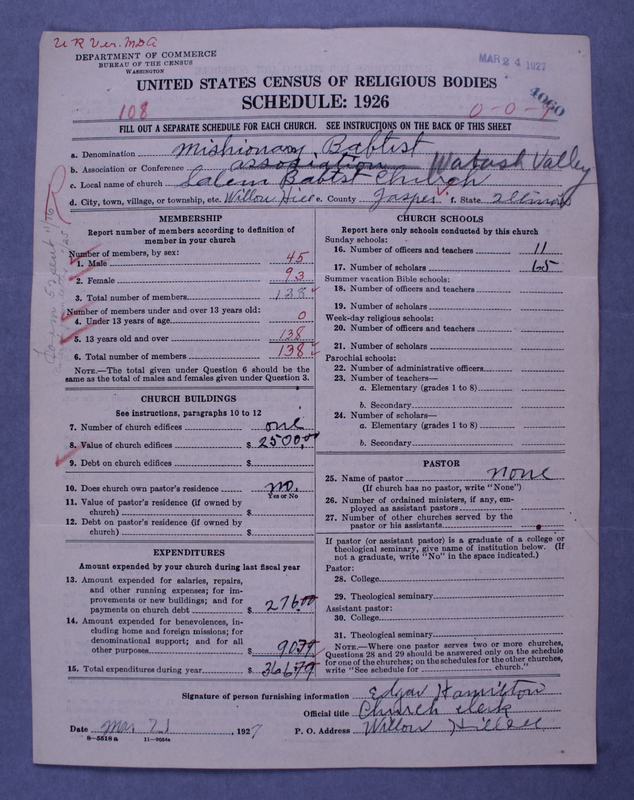 U R Ver. MDA
DEPARTMENT OF COMMERCE
BUREAU OF THE CENSUS
WASHINGTON
MAR 24 1927
UNITED STATES CENSUS OF RELIGIOUS BODIES
SCHEDULE: 1926
108
0-0-9
4060
FILL OUT A SEPARATE SCHEDULE FOR EACH CHURCH. SEE INSTRUCTIONS ON THE BACK OF THIS SHEET
a. Denomination Mishionary Babtist
b. Association or Conference association Wabash Valley
c. Local name of church Salem Babtst Church
d. City, town, village, or township, etc. Willow Hill e. County Jasper f. State Illinois
R
MEMBERSHIP
Report number of members according to definition of
member in your church
Number of members, by sex:
1. Male 45
2. Female 93
3. Total number of members 138
Number of members under and over 13 years old:
4. Under 13 years of age 0
5. 13 years old and over 138
6. Total number of members 138
NOTE.—The total given under Question 6 should be
the same as the total of males and females given under Question 3.
CHURCH BUILDINGS
See instructions, paragraphs 10 to 12
7. Number of church edifices one
8. Value of church edifices $ 2500.00
9. Debt on church edifices $
10. Does church own pastor's residence no.
Yes or No
11. Value of pastor's residence (if owned by
church) $
12. Debt on pastor's residence (if owned by
church) $
EXPENDITURES
Amount expended by your church during last fiscal year
13. Amount expended for salaries, repairs,
and other running expenses; for im-
provements or new buildings; and for
payments on church debt $ 276.00
14. Amount expended for benevolences, in-
cluding home and foreign missions; for
denominational support; and for all
other purposes $ 90.79
15. Total expenditures during year $ 366.79
CHURCH SCHOOLS
Report here only schools conducted by this church
Sunday schools:
16. Number of officers and teachers 11
17. Number of scholars 65
Summer vacation Bible schools:
18. Number of officers and teachers
19. Number of scholars
Week-day religious schools:
20. Number of officers and teachers
21. Number of scholars
Parochial schools:
22. Number of administrative officers
23. Number of teachers—
a. Elementary (grades 1 to 8)
b. Secondary
24. Number of scholars—
a. Elementary (grades 1 to 8)
b. Secondary
PASTOR
25. Name of pastor none
(If church has no pastor, write "None")
26. Number of ordained ministers, if any, em-
ployed as assistant pastors
27. Number of other churches served by the
pastor or his assistants
If pastor (or assistant pastor) is a graduate of a college or
theological seminary, give name of institution below. (If
not a graduate, write "No" in the space indicated.)
Pastor:
28. College
29. Theological seminary
Assistant pastor:
30. College
31. Theological seminary
NOTE.—Where one pastor serves two or more churches,
Questions 28 and 29 should be answered only on the schedule
for one of the churches; on the schedules for the other churches,
write "See schedule for church."
Signature of person furnishing information Edgar Hamilton
Official title Church clerk
Date Mar 21, 1927 P. O. Address Willow Hill Ill
8—5518a 11—9054a